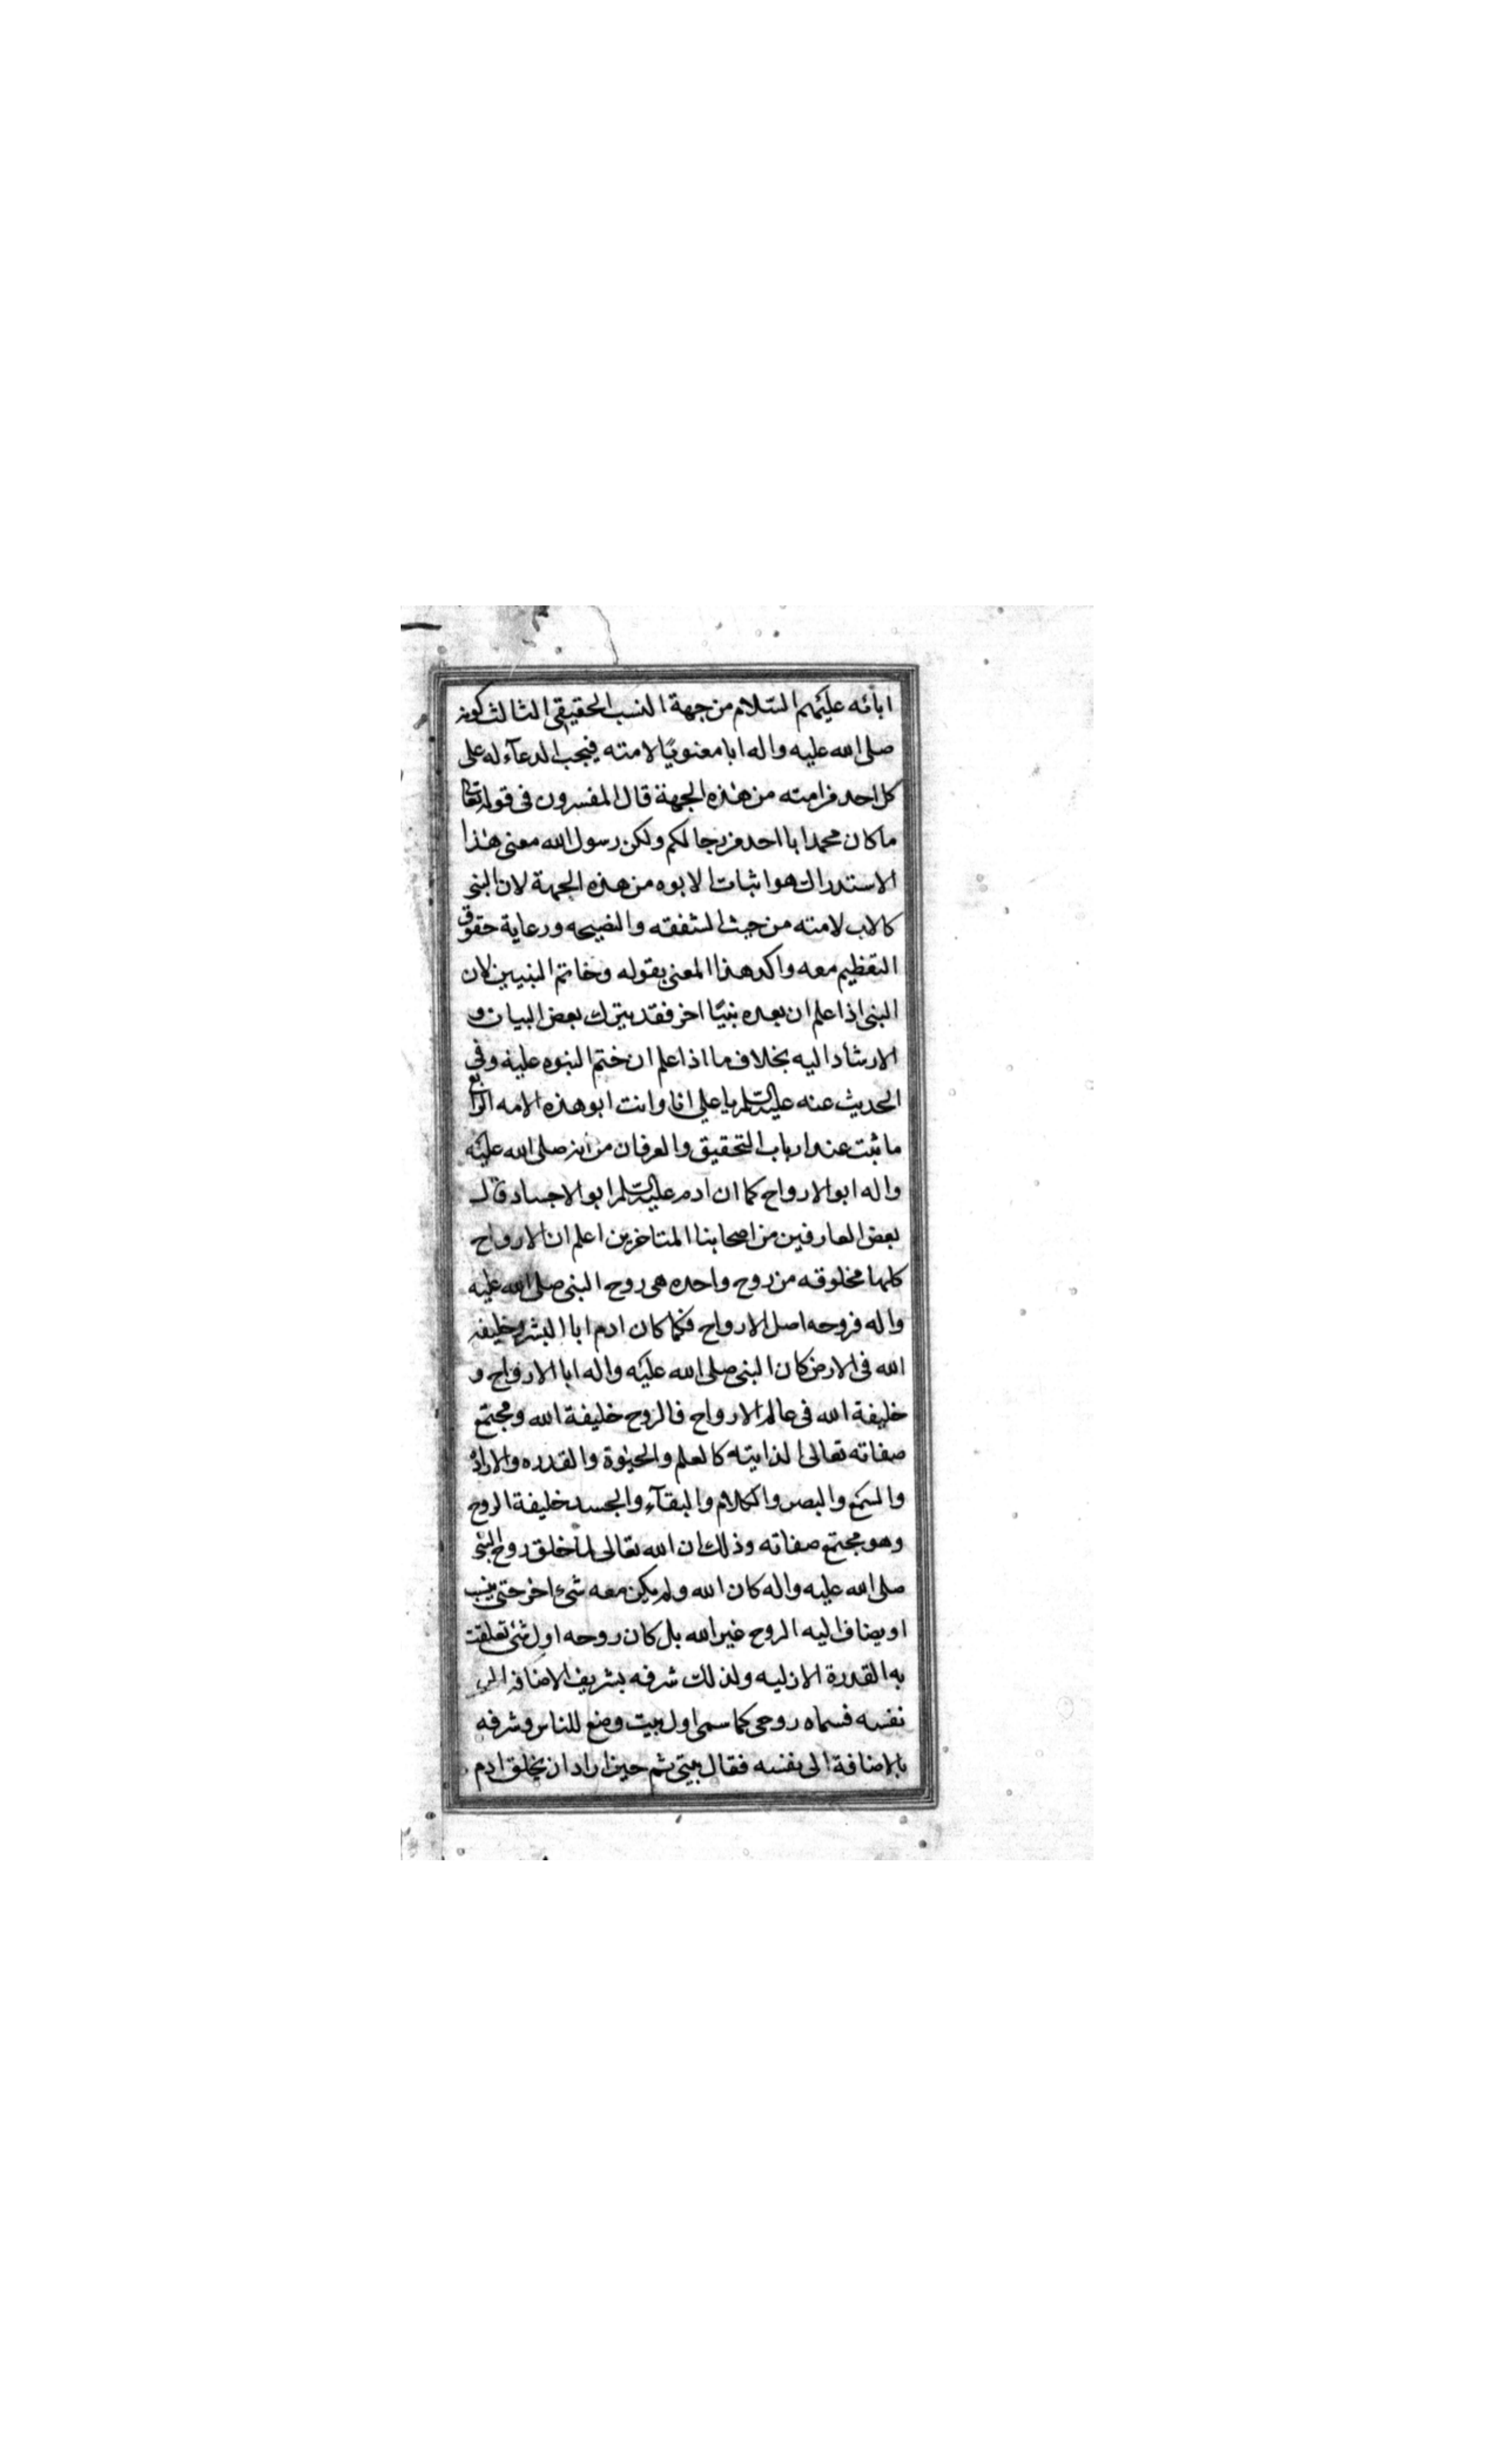 ابائه عليهم السّلام من جهة النسب الحقيقى الثالث كونه
صلى الله عليه واله ابا معنويًا لامته فيجب الدعآء له على
كل احد من امته من هذه الجهة قال المفسرون فى قوله تعالى
ما كان محمد ابا احد من رجالكم ولكن رسول الله معنى هذا
الاستدراك هو اثبات الابوه من هذه الجهة لان النبى
كالاب لامته من حيث الشفقه والنصيحه ورعاية حقوق
التعظيم معه واكد هذا المعنى بقوله وخاتم النبيين لان
النبى اذا علم ان بعده نبيًا اخر فقد يترك بعض البيان و
الارشاد اليه بخلاف ما اذا علم ان ختم النبوه عليه وفى
الحديث عنه عليه السلم يا على انا وانت ابو هذه الامه الرابع
ما ثبت عند ارباب التحقيق والعرفان من انه صلى الله عليه
واله ابو الارواح كما ان ادم عليه السلم ابو الاجساد قال
بعض العارفين من اصحابنا المتاخرين اعلم ان الارواح
كلها مخلوقه من روح واحده هى روح النبى صلى الله عليه
واله فروحه اصل الارواح فكما كان ادم ابا البشر وخليفه
الله فى الارض كان النبى صلى الله عليه واله ابا الارواح و
خليفة الله فى عالم الارواح فالروح خليفة الله ومجتمع
صفاته تعالى الذايته كالعلم والحيوة والقدره والارادة
والسمع والبصر والكلام والبقآء والجسد خليفة الروح
وهو مجتمع صفاته وذلك ان الله تعالى لما خلق روح النبى
صلى الله عليه واله كان الله ولم يكن معه شئ اخر حتى ينسب
او يضاف اليه الروح غير الله بل كان روحه اول شئ تعلقت
به القدرة الازليه ولذلك شرفه بتشريف الاضافه الى
نفسه فسماه روحى كما سمى اول بيت وضع للناس وشرفه
بالاضافة الى نفسه فقال بيتى ثم حين اراد ان يخلق ادم